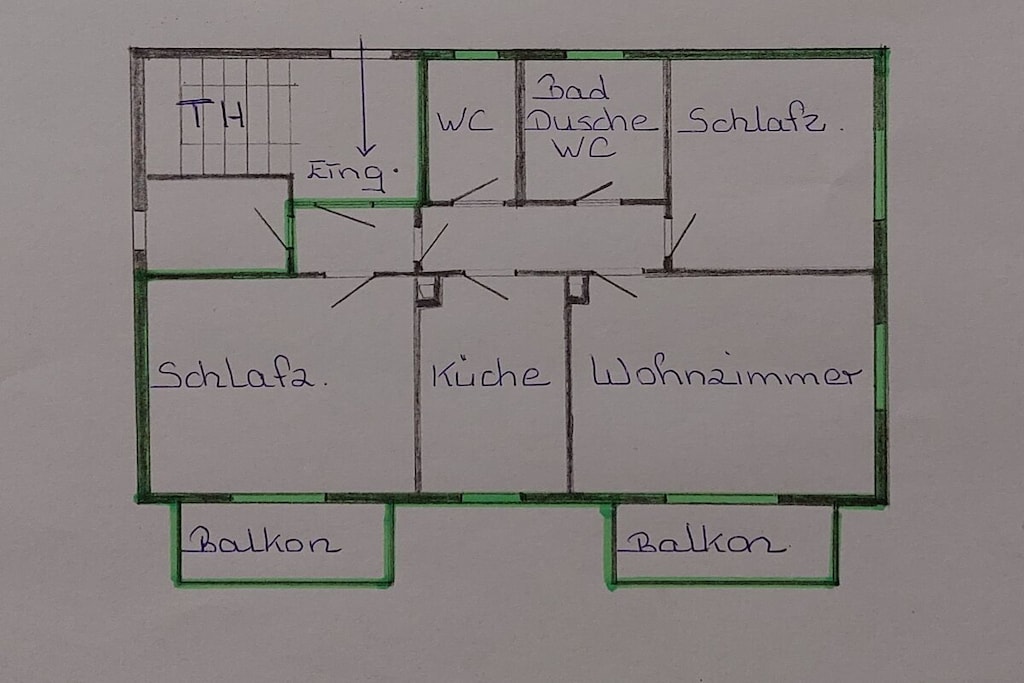 TH
Eing.
WC
Bad
Dusche
WC
Schlafz.
Schlafz.
Küche
Wohnzimmer
Balkon
Balkon